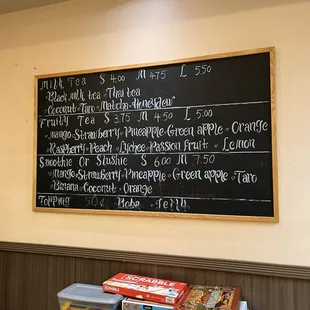 Milk Tea S 4.00 M 4.75 L 5.50
Black milk tea Thai tea
Coconut Taro Matcha Honeydew
Fruity Tea S 3.75 M 4.50 L 5.00
Mango Strawberry Pineapple Green apple Orange
Raspberry Peach Lychee Passion fruit Lemon
Smoothie Or Slushie S 6.00 M 7.50
Mango Strawberry Pineapple Green apple Taro
Banana Coconut Orange
Topping 50¢ Boba Jelly
SCRABBLE